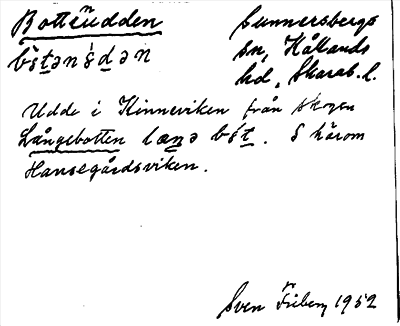 Bottenudden
Gunnersbergs
sn, Kållands
hd, Skarab. l.
Udde i Kinneviken från skogen
Långebotten. S härom
Hanségårdsviken.
Sven Friberg 1952